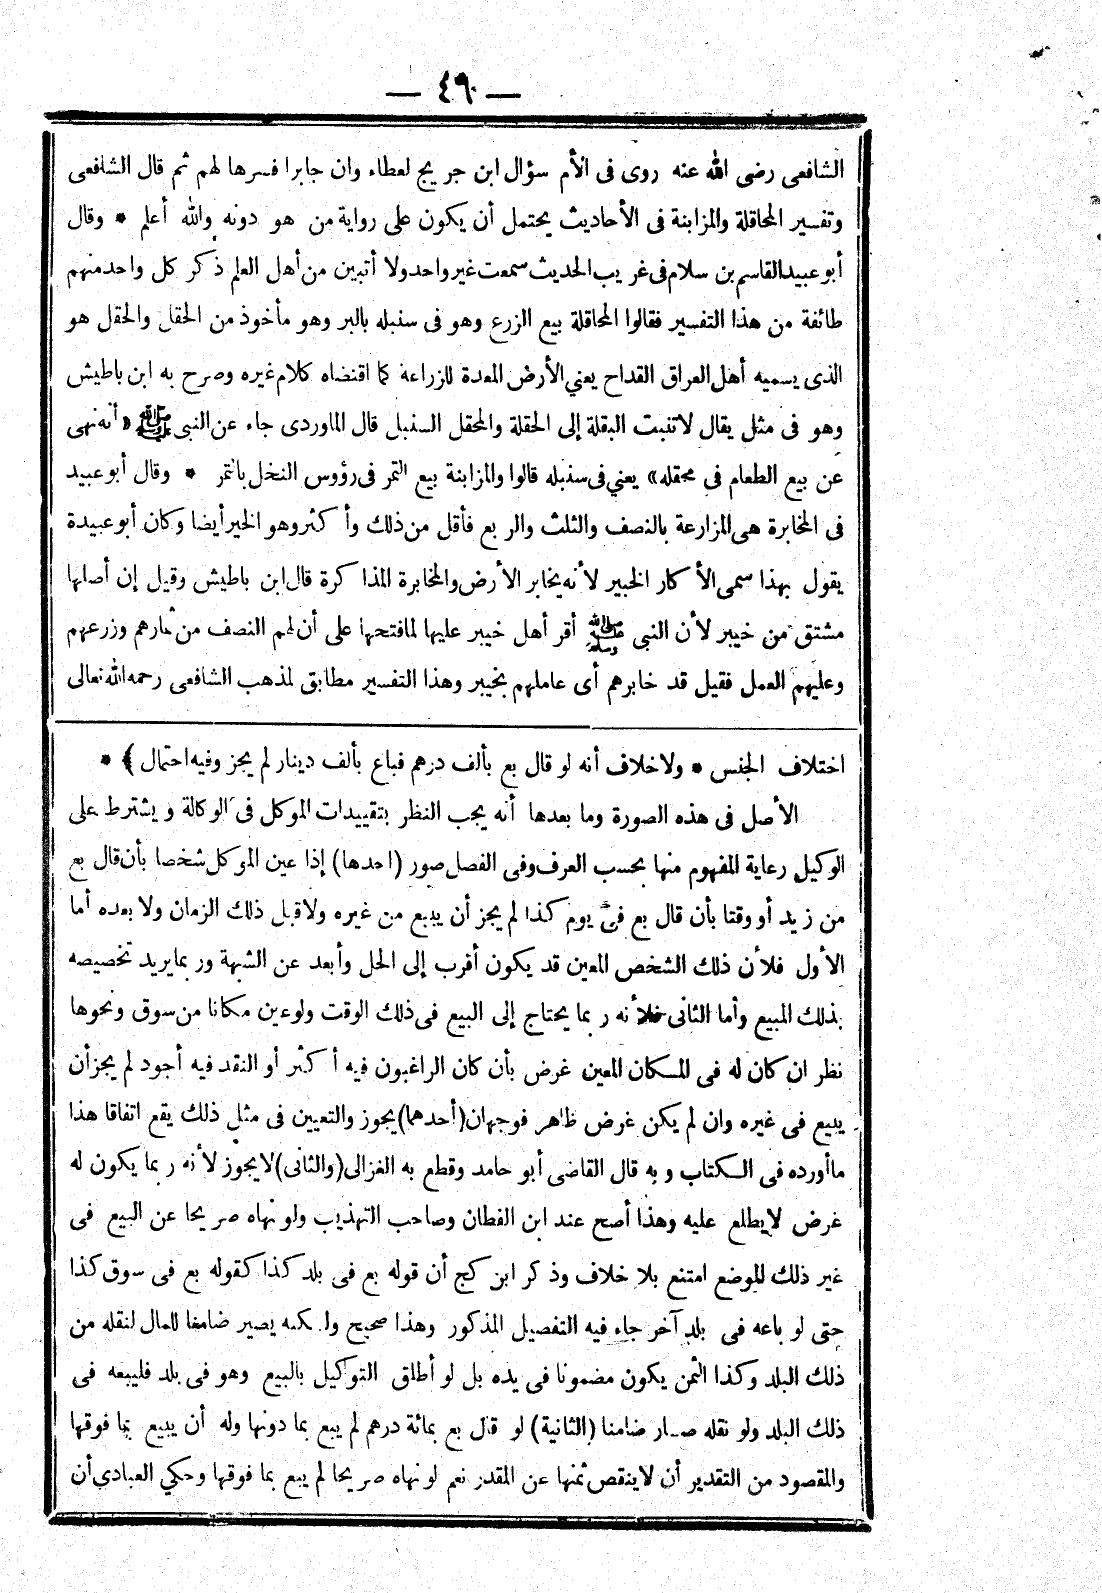 — ٤٩ —
الشافعى رضى الله عنه روى فى الأم سؤال ابن جريج لعطاء وان جابرا فسرها لهم ثم قال الشافعى
وتفسير المحاقلة والمزابنة فى الأحاديث يحتمل أن يكون على رواية من هو دونه والله أعلم * وقال
أبو عبيد القاسم بن سلام فى غريب الحديث سمعت غير واحد ولا أتبين من أهل العلم ذكر كل واحد منهم
طائفة من هذا التفسير فقالوا المحاقلة بيع الزرع وهو فى سنبله بالبر وهو مأخوذ من الحقل والحقل هو
الذى يسميه أهل العراق القداح يعني الأرض المعدة للزراعة كما اقتضاه كلام غيره وصرح به ابن باطيش
وهو فى مثل يقال لا تنبت البقلة إلى الحقلة والمحقل السنبل قال الماوردى جاء عن النبى ﷺ « أنه نهى
عن بيع الطعام فى محقله » يعني فى سنبله قالوا والمزابنة بيع الثمر فى رؤوس النخل بالتمر * وقال أبو عبيد
فى المخابرة هى المزارعة بالنصف والثلث والربع فأقل من ذلك وأكثر وهو الخبر أيضا وكان أبو عبيدة
يقول بهذا سمى الأكار الخبير لأنه يخابر الأرض والمخابرة المذاكرة قال ابن باطيش وقيل إن أصلها
مشتق من خيبر لأن النبى ﷺ أقر أهل خيبر عليها لما فتحها على أن لهم النصف من ثمارهم وزرعهم
وعليهم العمل فقيل قد خابرهم أى عاملهم بخيبر وهذا التفسير مطابق لمذهب الشافعى رحمه الله تعالى
اختلاف الجنس * ولا خلاف أنه لو قال بع بألف درهم فباع بألف دينار لم يجز وفيه احتمال ﴾ *
الأصل فى هذه الصورة وما بعدها أنه يجب النظر بتقييدات الموكل فى الوكالة ويشترط على
الوكيل رعاية المفهوم منها بحسب العرف وفى الفصل صور (احدها) إذا عين الموكل شخصا بأن قال بع
من زيد أو وقتا بأن قال بع فى يوم كذا لم يجز أن يبيع من غيره ولا قبل ذلك الزمان ولا بعده أما
الأول فلأن ذلك الشخص المعين قد يكون أقرب إلى الحل وأبعد عن الشبهة وربما يريد تخصيصه
بذلك المبيع وأما الثانى فلأنه ربما يحتاج إلى البيع فى ذلك الوقت ولو عين مكانا من سوق ونحوها
نظر ان كان له فى المكان المعين غرض بأن كان الراغبون فيه أكثر أو النقد فيه أجود لم يجز أن
يبيع فى غيره وان لم يكن غرض ظاهر فوجهان (أحدهما) يجوز والتعيين فى مثل ذلك يقع اتفاقا هذا
ما أورده فى الكتاب وبه قال القاضى أبو حامد وقطع به الغزالى (والثانى) لا يجوز لأنه ربما يكون له
غرض لا يطلع عليه وهذا أصح عند ابن القطان وصاحب التهذيب ولو نهاه صريحا عن البيع فى
غير ذلك الموضع امتنع بلا خلاف وذكر ابن كج أن قوله بع فى بلد كذا كقوله بع فى سوق كذا
حتى لو باعه فى بلد آخر جاء فيه التفصيل المذكور وهذا صحيح ولكنه يصير ضامنا للمال لنقله من
ذلك البلد وكذا الثمن يكون مضمونا فى يده بل لو أطلق التوكيل بالبيع وهو فى بلد فليبعه فى
ذلك البلد ولو نقله صار ضامنا (الثانية) لو قال بع بمائة درهم لم يبع بما دونها وله أن يبيع بما فوقها
والمقصود من التقدير أن لا ينقص ثمنها عن المقدر نعم لو نهاه صريحا لم يبع بما فوقها وحكي العبادى أن